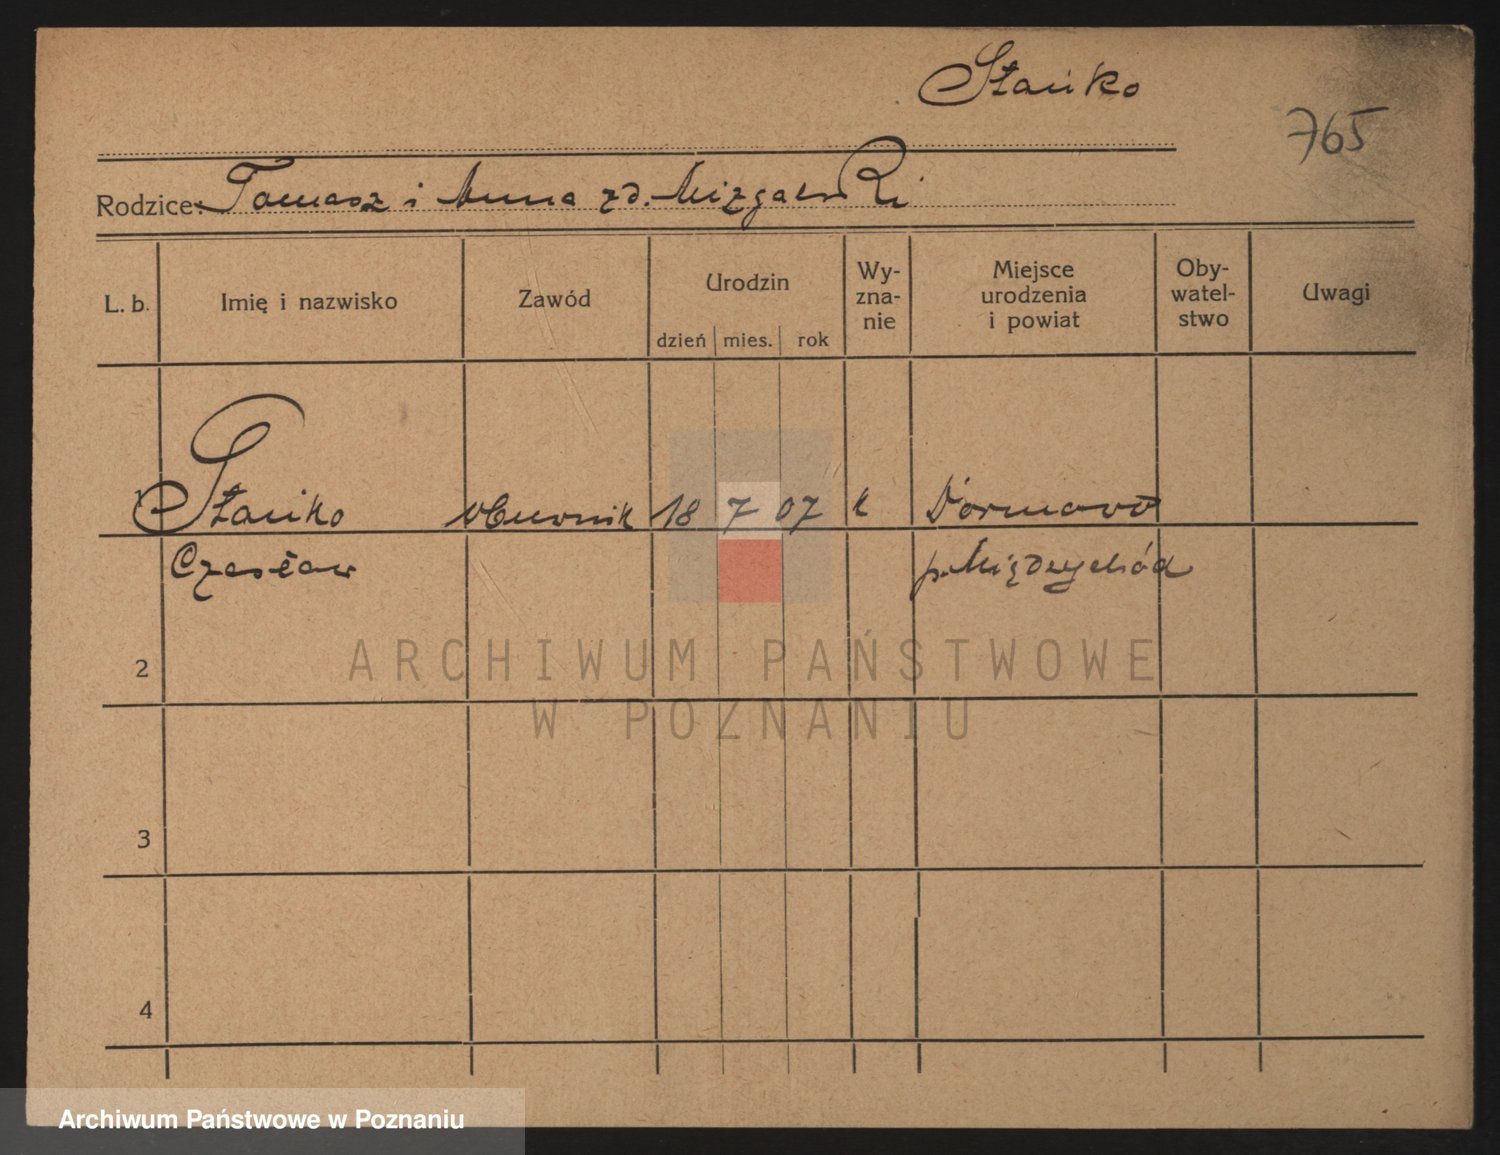 Stańko
765
Rodzice: Tomasz i Anna zd. Mizgalski
L. b.
Imię i nazwisko
Zawód
Urodzin
dzień
mies.
rok
Wy-
zna-
nie
Miejsce
urodzenia
i powiat
Oby-
watel-
stwo
Uwagi
1
Stańko
18
7
07
k
Dormowo
Czesław
p. Międzychód
2
3
4
ARCHIWUM PAŃSTWOWE
W POZNANIU
Archiwum Państwowe w Poznaniu